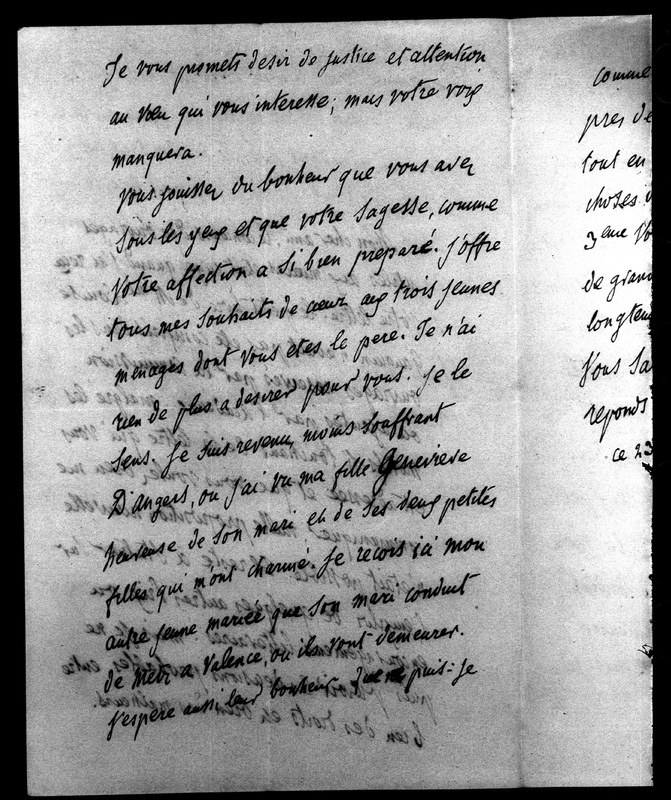 Je vous promets desir de justice et attention
au vœu qui vous interesse; mais votre voix
manquera.
Vous jouissez du bonheur que vous avez
sous les yeux et que votre sagesse, comme
votre affection a si bien preparé. J'offre
tous mes souhaits de cœur aux trois jeunes
menages dont vous etes le pere. Je n'ai
rien de plus a desirer pour vous. Je le
sens. Je suis revenu, moins souffrant
D'angers, ou j'ai vu ma fille Genevieve
heureuse de son mari et de ses deux petites
filles qui mont charmé. Je recois ici mon
autre jeune mariée que son mari conduit
de Metz a Valence, ou ils vont demeurer.
J'espere aussi leur bonheur. Que puis-je
comme
pres de
tout en
choses
3eme
de gran
longtem
Vous sa
reponds
ce 23